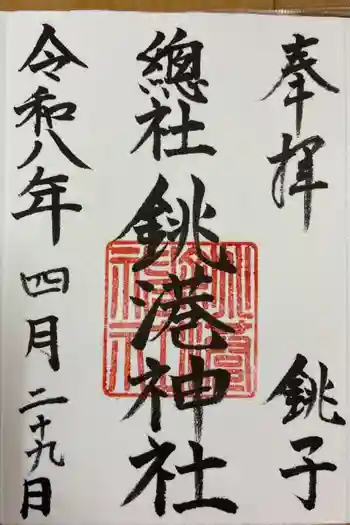 奉拝 銚子
總社 銚港神社
令和八年 四月 二十九日